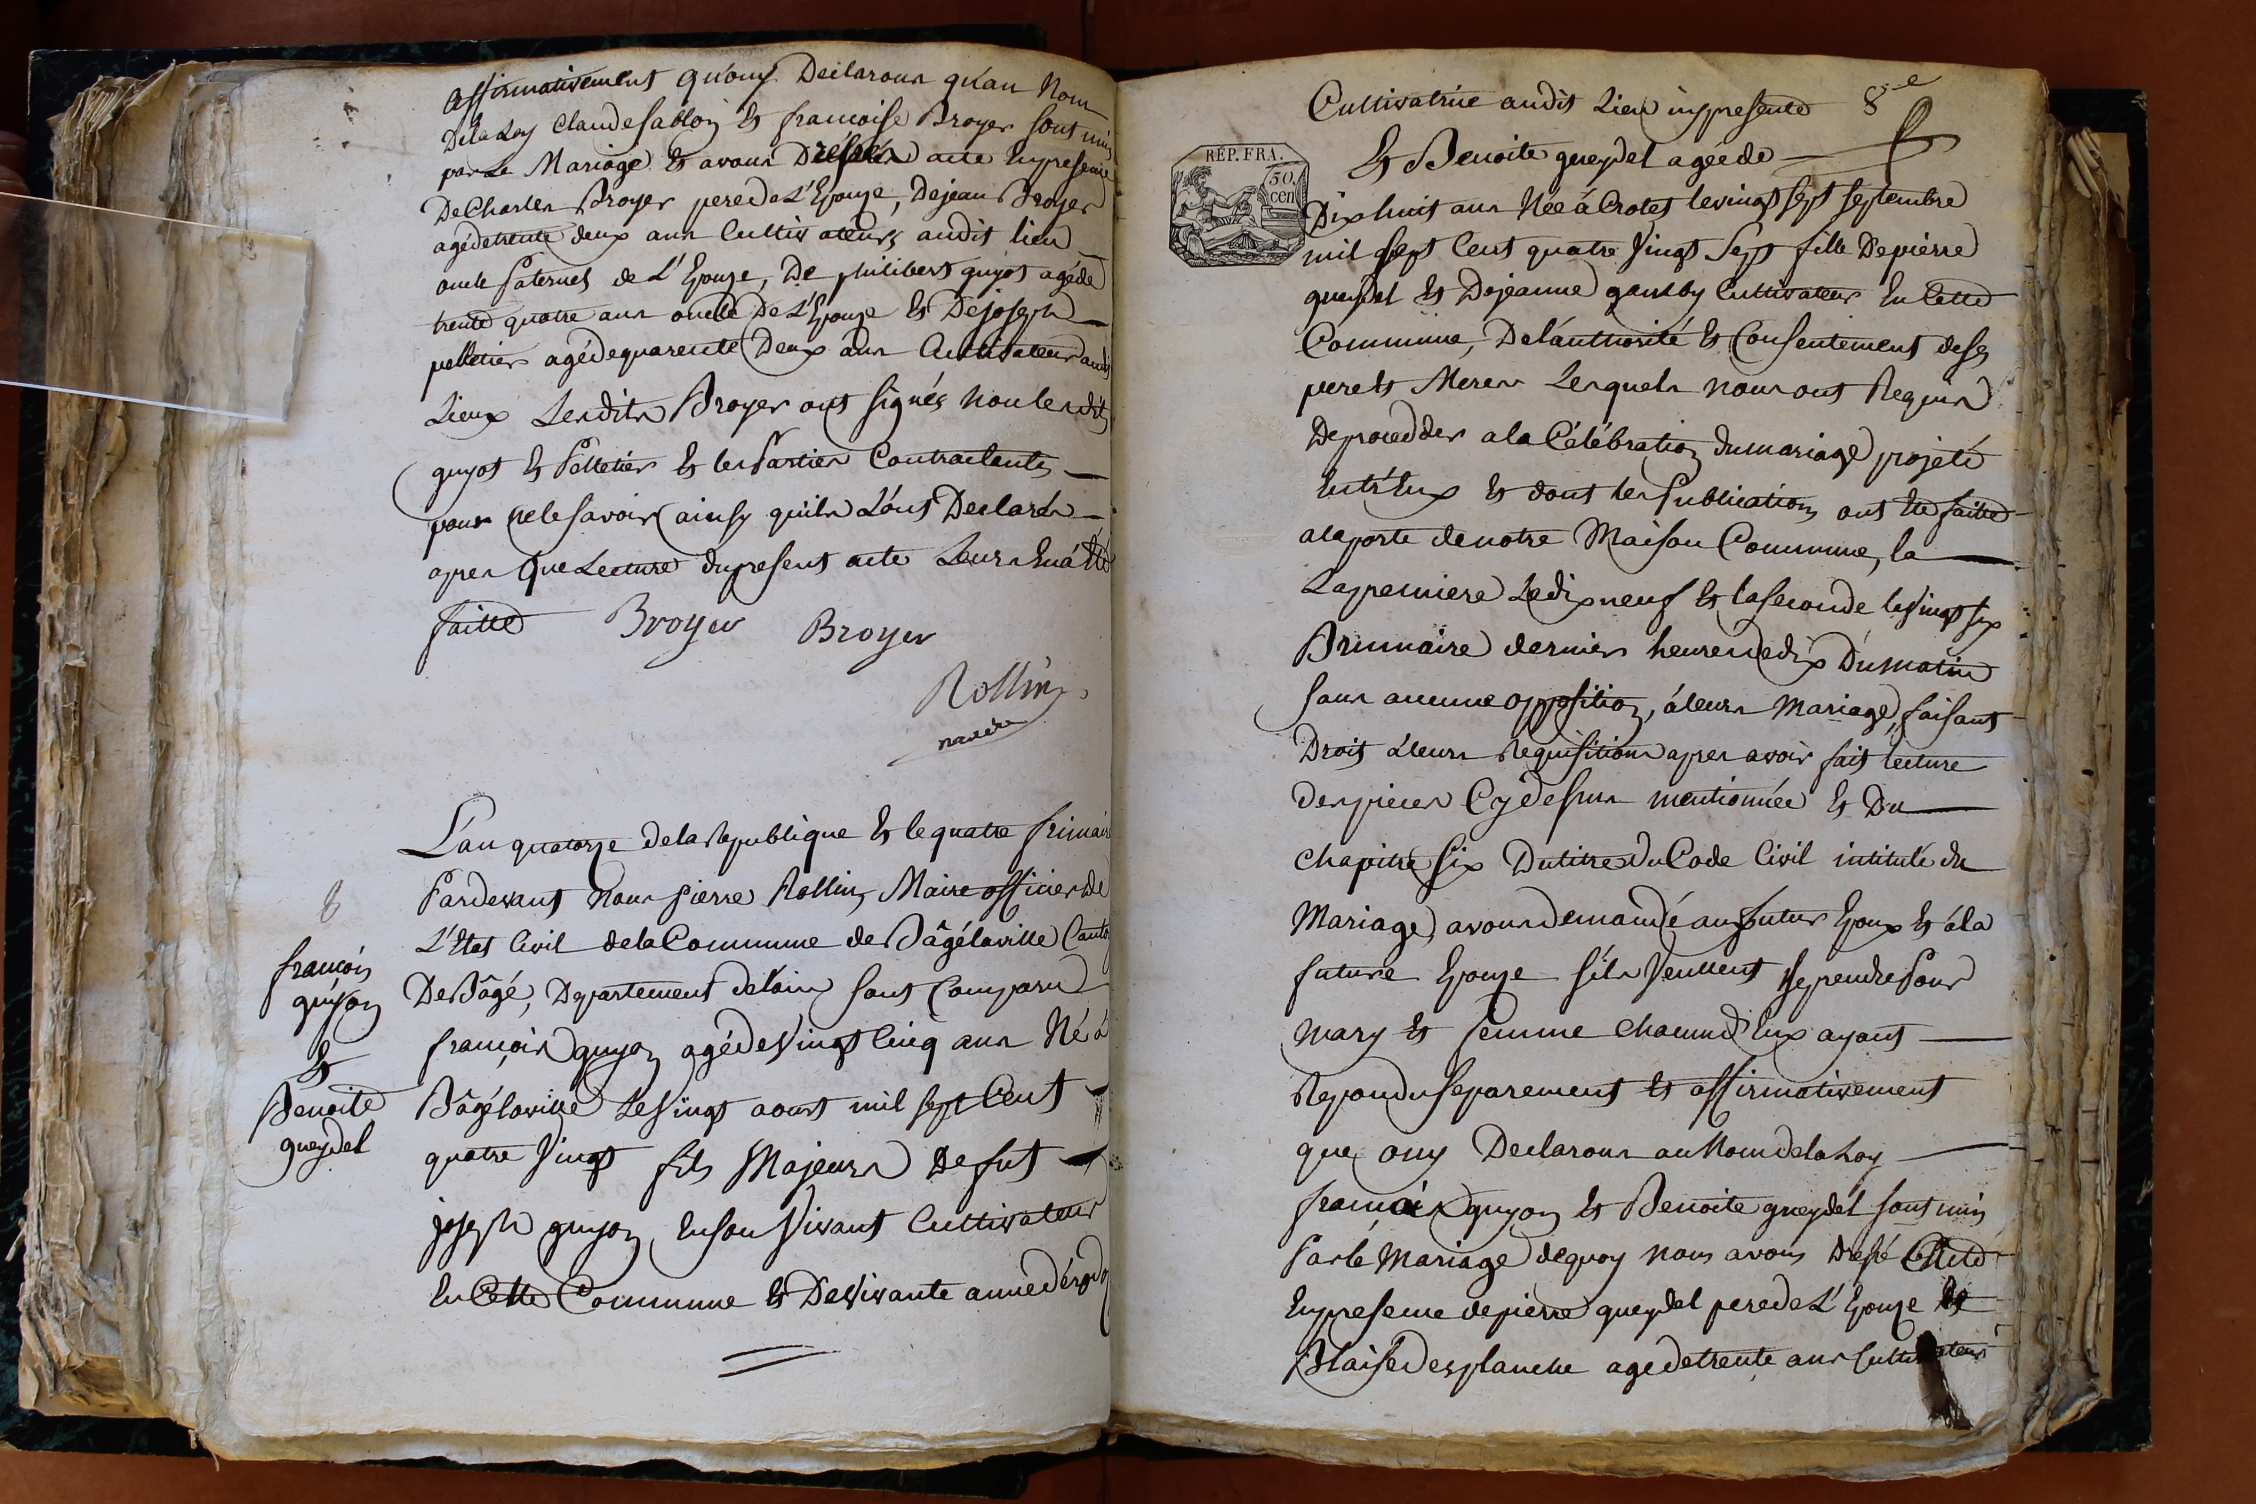 affirmativement qu'ouy Declarons qu'au Nom
De la Loy Claude Sablon & francoise Broyer sont unis
par Le Mariage & avons Dressés acte En presence
De Charles Broyer pere de L'Epouze, De jean Broyer
agé de trente deux ans Cultivateurs audit lieu
oncle Paternel de L'Epouze, De philibert guyot agé de
trente quatre ans oncle De L'Epouze & De joseph
pelletier agé de quarente Deux ans Cultivateur audit
Lieux Lesdits Broyer ont signés non lesdits
guyot & Pelletier & les Parties Contractantes
pour ne le savoir ainsy quils L'ont Declarés
apres que Lecture du present acte Leurs En á Eté
faitte Broyer Broyer
Rollin
maire
L'an quatorze de la Republique & le quatre frimaire
Pardevant Nous Pierre Rollin, Maire officier de
L'Etat Civil de la Commune de Bâgélaville Canton
De Bâgé, Departement de l'ain sont Comparu
8
françois
guyon
&
Benoite
gueydel
françois guyon agé de Vingt Cinq ans Né á
Bâgélaville Le Vingt aoust mil sept Cent
quatre Vingt fils Majeurs De fut
joseph guyon En son Vivant Cultivateur
En Cette Commune & De Vivante anne
Cultivatrice audit Lieu icy presente 8
REP. FRA.
50
cen
& Benoite gueydel agée de
Dix huit ans Née á Crotet le vingt sept septembre
mil sept Cent quatre Vingt Sept fille De pierre
gueydel & De jeanne Cultivateur En Cette
Commune, De l'authorité & Consentement de ses
pere & Meres Lesquels nous ont Requis
De procedder a la Célébration du mariage projeté
Entr'Eux & dont les Publications ont Eté faitte
a la porte de notre Maison Commune, la
La premiere Le dix neuf & la seconde le Vingt six
Brumaire dernier heures de dix Du matin
sans aucune opposition, á leurs Mariage, faisant
Droit á leurs Requisitions apres avoir fait lecture
des pieces Cy dessus mentionnée & Du
chapitre six Du titre du Code Civil intitulé du
Mariage, avons demandé au futur Epoux & á la
future Epouze s'ils Veullent se prendre Pour
mary & femme chacun d'Eux ayant
Repondu separement & affirmativement
que ouy Declarons au Nom de la Loy
françois guyon & Benoite gueydel sont unis
Par le Mariage de quoy nous avons Dressé acte
En presence de pierre gueydel pere de L'Epouze &
Blaise desplanche agé de trente ans Cultivateurs